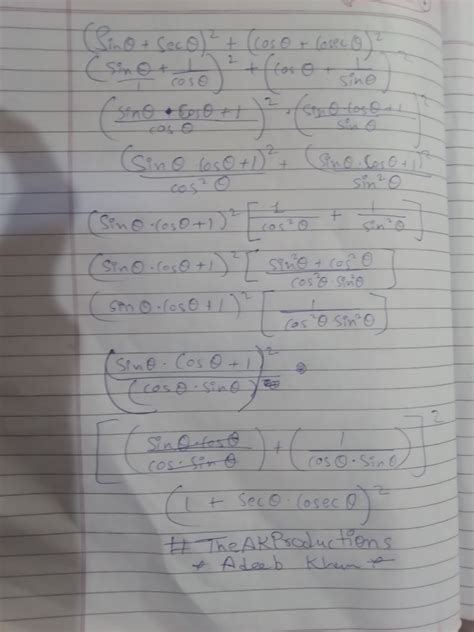 (Sinθ + Secθ)² + (Cosθ + Cosecθ)²
(Sinθ/1 + 1/cosθ)² + (Cosθ + 1/sinθ)²
(sinθ • cosθ+1/cosθ)² + (sinθ·cosθ+1/sinθ)²
(Sinθ cosθ+1)²/cos²θ + (Sinθ·cosθ+1)²/sin²θ
(Sinθ·cosθ+1)² [1/cos²θ + 1/sin²θ]
(Sinθ·cosθ+1)² [sin²θ+cos²θ/cos²θ·sin²θ]
(sinθ·cosθ+1)² [1/cos²θ sin²θ]
(Sinθ·Cosθ+1/(cosθ·sinθ))²
[(sinθ·cosθ/cos·sinθ) + (1/cosθ·sinθ)]²
(1 + secθ·cosecθ)²
# TheAKProductions
* Adeeb Khan *